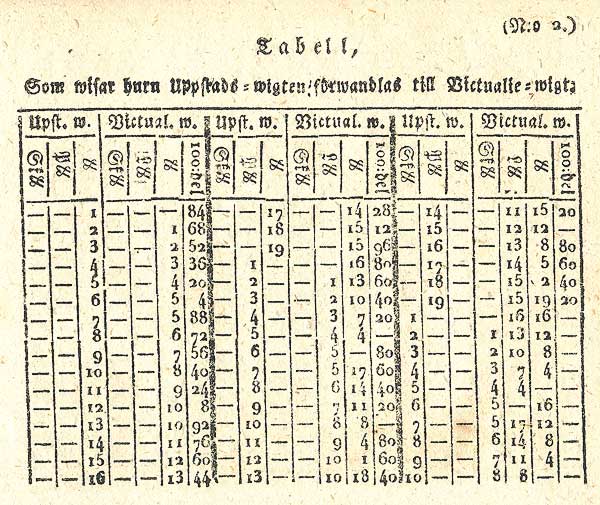 (N:o 2.)
Tabell,
Som wisar huru Uppstads-wigten förwandlas till Victualie-wigt.
Upst. w. Victual. w. Upst. w. Victual. w. Upst. w. Victual. w.
Sk℔ L℔ ℔ Sk℔ L℔ ℔ 100:del Sk℔ L℔ ℔ Sk℔ L℔ ℔ 100:del Sk℔ L℔ ℔ Sk℔ L℔ ℔ 100:del
— — 1 — — — 84 — — 17 — — 14 28 — 14 — — 11 15 20
— — 2 — — 1 68 — — 18 — — 15 12 — 15 — — 12 12 —
— — 3 — — 2 52 — — 19 — — 15 96 — 16 — — 13 8 80
— — 4 — — 3 36 — 1 — — — 16 80 — 17 — — 14 5 60
— — 5 — — 4 20 — 2 — — 1 13 60 — 18 — — 15 2 40
— — 6 — — 5 4 — 3 — — 2 10 40 — 19 — — 15 19 20
— — 7 — — 5 88 — 4 — — 3 7 20 1 — — — 16 16 —
— — 8 — — 6 72 — 5 — — 4 4 — 2 — — 1 13 12 —
— — 9 — — 7 56 — 6 — — 5 — 80 3 — — 2 10 8 —
— — 10 — — 8 40 — 7 — — 5 17 60 4 — — 3 7 4 —
— — 11 — — 9 24 — 8 — — 6 14 40 5 — — 4 4 — —
— — 12 — — 10 8 — 9 — — 7 11 20 6 — — 5 — 16 —
— — 13 — — 10 92 — 10 — — 8 8 — 7 — — 5 17 12 —
— — 14 — — 11 76 — 11 — — 9 4 80 8 — — 6 14 8 —
— — 15 — — 12 60 — 12 — — 10 1 60 9 — — 7 11 4 —
— — 16 — — 13 44 — 13 — — 10 18 40 10 — — 8 8 — —